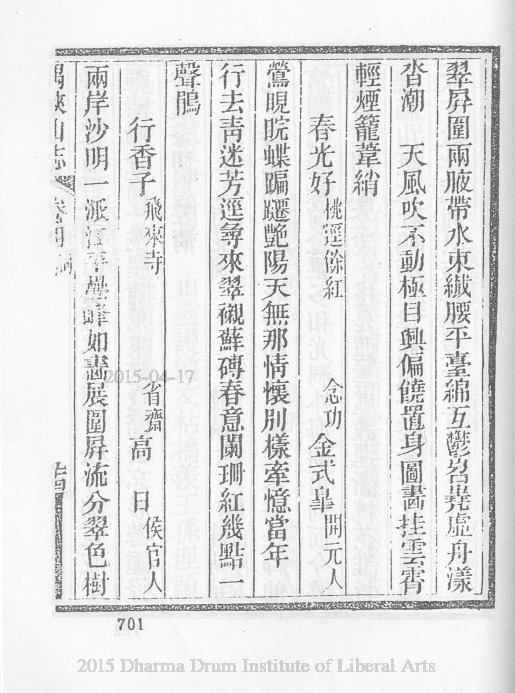 翠屏圍兩腋帶水束纖腰平臺綿互鬱岧嶤虛舟漾
沓潮　天風吹不動極目興偏饒置身圖畵挂雲霄
輕煙籠葦綃
春光好　桃逕餘紅　念功　金式皐　開元人
鶯睍睆蝶蹁躚艷陽天無那情懷別樣牽憶當年
行去靑迷芳逕尋來翠襯蘚磚春意闌珊紅幾點一
聲鵑
行香子　飛來寺　省齋　高　日　侯官人
兩岸沙明一派
峰如畵展圍屏流分翠色樹
峽山志　卷四　廿四
2015-04-17
701
2015 Dharma Drum Institute of Liberal Arts